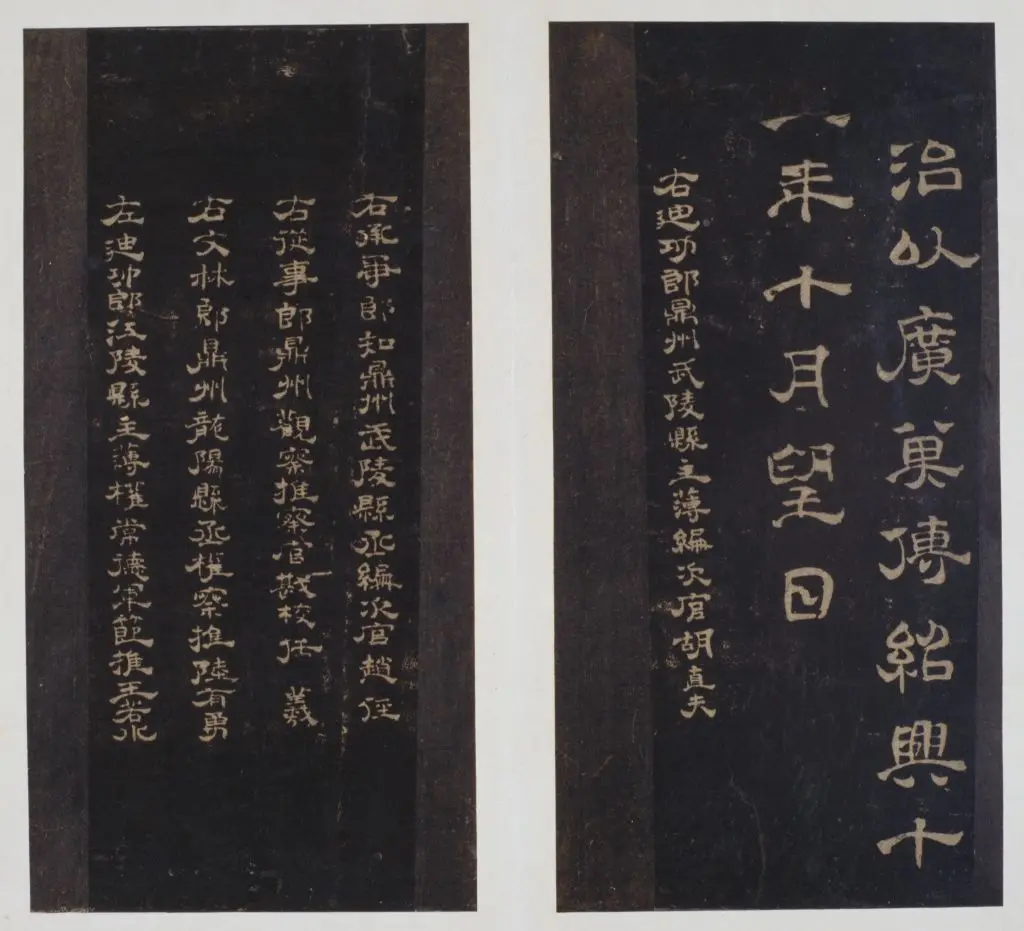 治以廣其傳紹興十
一年十月望日
右迪功郎鼎州武陵縣主薄編次官胡直夫
右承事郎知鼎州武陵縣丞編次官趙
右從事郎鼎州觀察推察官戡校任 羲
右文林郎鼎州龍陽縣丞權察推陸有勇
左迪功郎江陵縣主薄權常德軍節推王若水